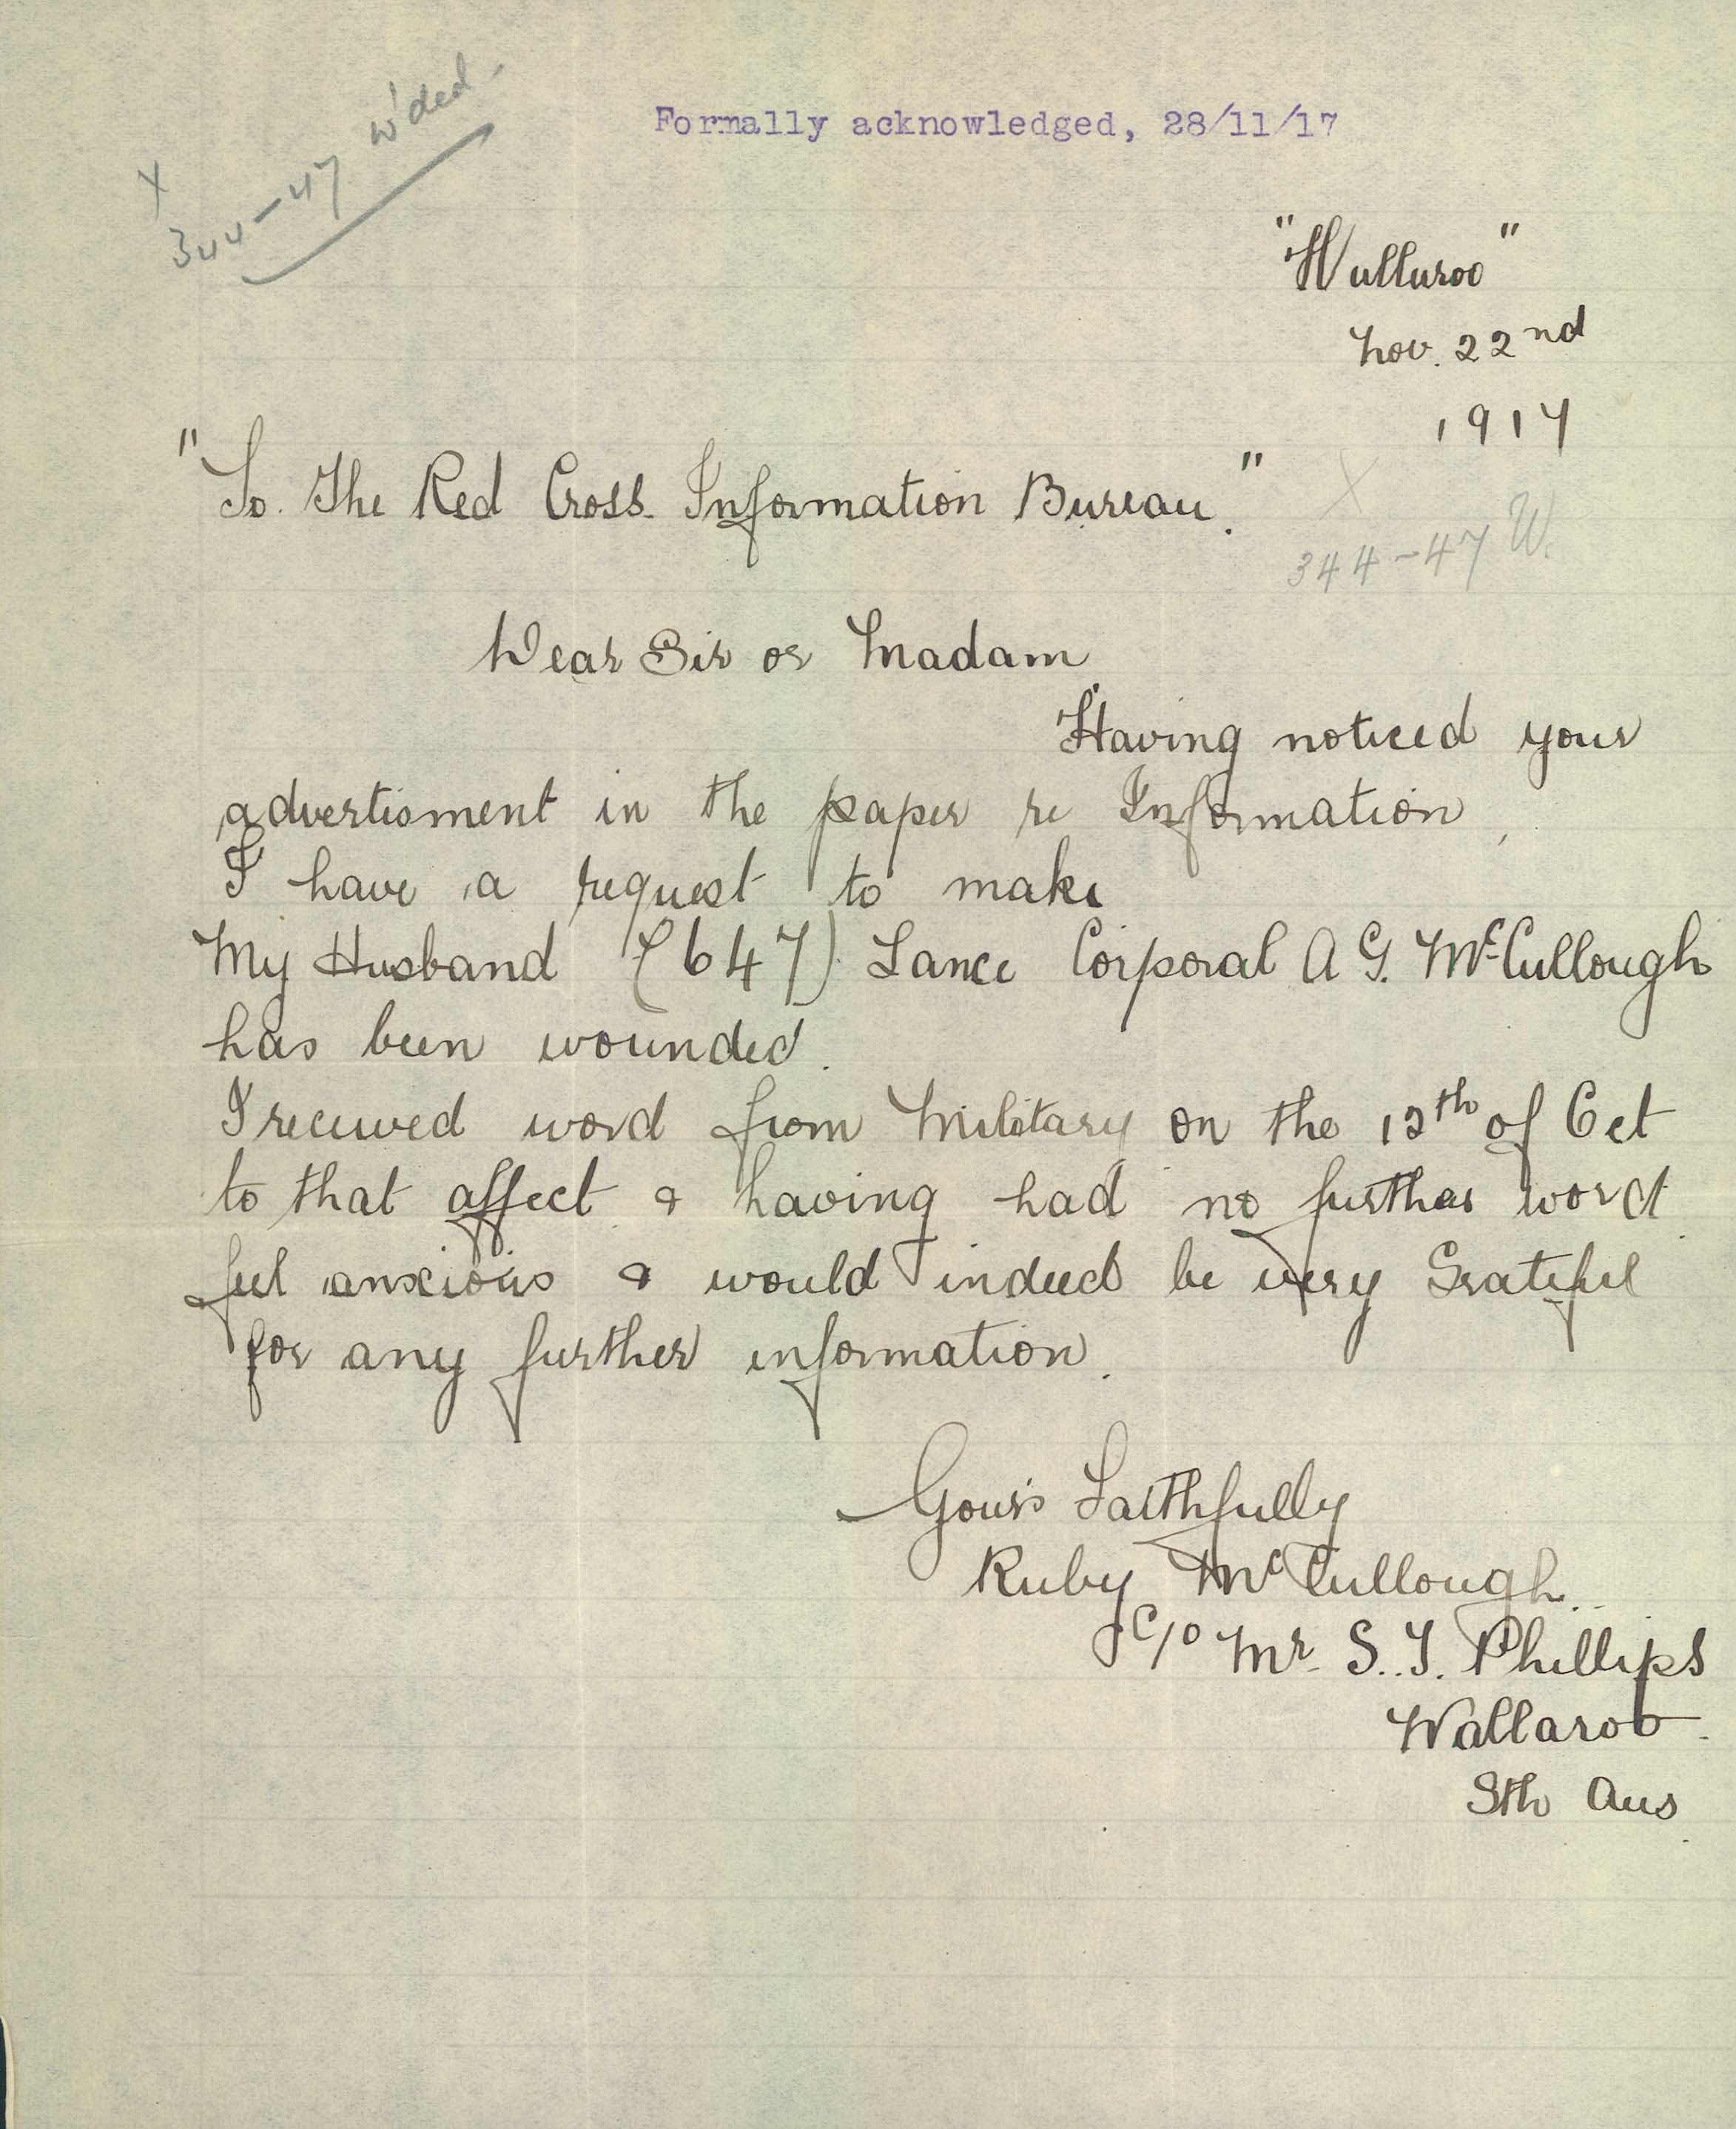 X
344-47 w'ded.
Formally acknowledged, 28/11/17
"Wallaroo"
Nov. 22nd
1917
"To. The Red Cross. Information Bureau."
X
344-47 W.
Dear Sir or Madam
Having noticed your
advertisment in the paper re Information,
I have a request to make
My Husband (647) Lance Corporal A G. McCullough
has been wounded.
I received word from Military on the 12th of Oct
to that affect & having had no further word
feel anxious & would indeed be very Grateful
for any further information.
Your's Faithfully
Ruby McCullough.
c/o Mr. S. J. Phillips
Wallaroo.
Sth Aus